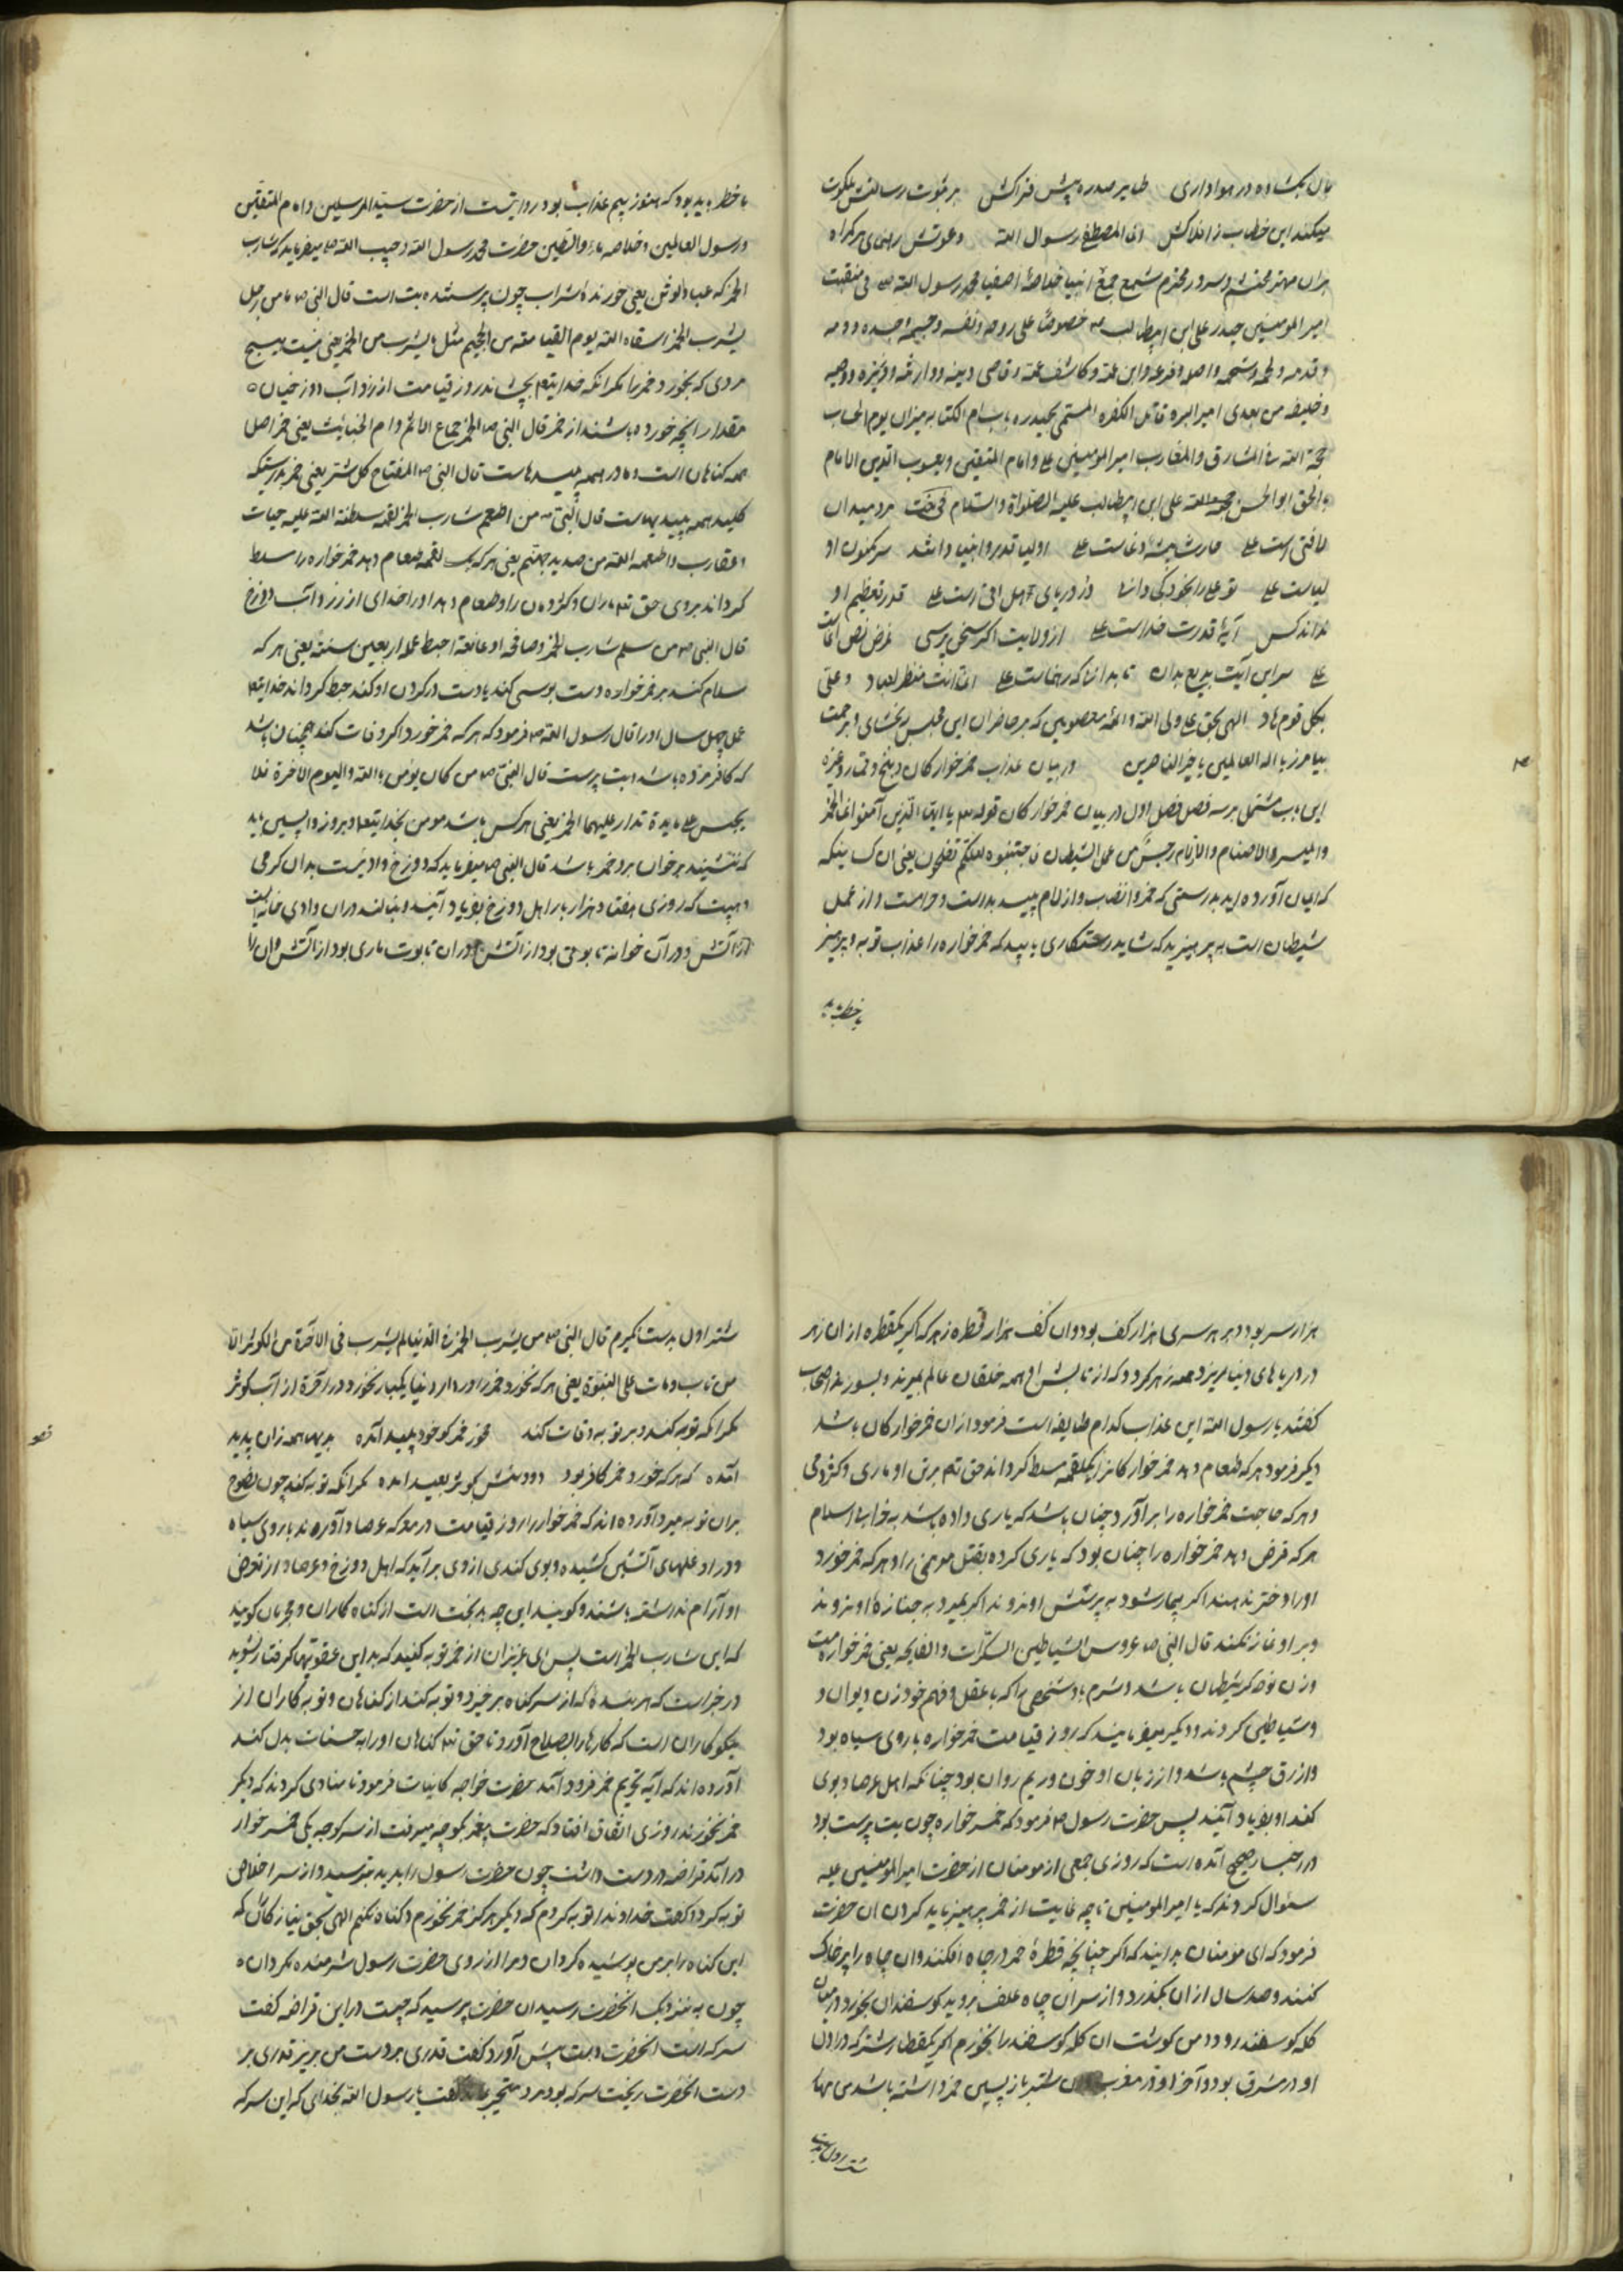 بال بکشاده در هواداری طایر سدره پیش فتراکش بر ثبوت رسالتش ملکوت
میکند این خطاب ز افلاکش انا المصطفی رسول الله دعوتش رهنمای هر گمراه
بران مهتر محتشم و سرور محترم شمع جمع انبیا خلاصهٔ اصفیا محمد رسول الله ص فی منقبت
امیر المومنین حیدر علی ابن ابیطالب خصوصا علی روحه و نفسه و جسمه و جسده و دمه
و خلیفه من بعدی امیر البرره قاتل الکفره المسمی بحیدره باسم الکتاب میزان یوم الحساب
حجة الله فی المشارق والمغارب امیر المومنین علی و امام المتقین و یعسوب الدین الامام
بالحق ابو الحسن علی ابن ابیطالب علیه الصلواة والسلام مرد میدان
لافتی است علی اولیا قدر و انبیا دانند سر مکنون او
نداند کس آیهٔ قدرت خداست علی از ولایت اگر سخن پرسی غرض نص انماست
علی سر این آیت بدیع بدان تا بدانی که رهنماست علی انما انت منذر لعباد و علی
بکل قوم هاد الهی بحق علی ولی الله و ائمهٔ معصومین که بر حاضران این مجلس ببخشای و برحمت
بیامرز یا اله العالمین یا خیر الناصرین در بیان عذاب خمر خوارگان و بنج و قمار و غیره
این باب مشتمل بر سه فصل فصل اول در بیان خمر خوارگان قوله تع یا ایها الذین آمنوا انما الخمر
والمیسر والانصاب والازلام رجس من عمل الشیطان فاجتنبوه لعلکم تفلحون یعنی ان کسانیکه
که ایمان آورده اید بدرستی که خمر و انصاب و ازلام پلید بد است و حرامست و از عمل
شیطان است به پرهیزید که شاید رستگاری یابید که خمر خواره را عذاب توبه و پرهیز
با خطر باید
با خطر باید بود که هنوز بیم عذاب بود روایتست از حضرت سید المرسلین و امام المتقین
و رسول العالمین و خلاصه ماء والطین حضرت محمد رسول الله و حبیب الله ص میفرماید که شارب
الخمر کعباد الوثن یعنی خورندهٔ شراب چون پرستنده بت است قال النبی ص ما من رجل
یشرب الخمر اسقاه الله یوم القیامة من الحمیم مثل ما یشرب من الخمر یعنی نیست هیچ
مردی که بخورد خمر را مگر انکه خدایتع بچشاند روز قیامت از زرد آب دوزخیان
مقدار انچه خورده باشند از خمر قال النبی ص الخمر جماع الاثم و ام الخبائث یعنی خمر اصل
همه گناهان است و مادر همه پلیدهاست قال النبی ص المفتاح کل شر یعنی خمر بدرستیکه
کلید همه پلیدیهاست قال النبی ص من اطعم شارب الخمر لقمه سلط الله علیه حیات
و عقارب و اطعمه الله من صدید جهنم یعنی هر که یک لقمه طعام دهد خمر خواره را مسلط
گرداند بر وی حق تع ماران و کژدمان را و طعام دهد او را خدای از زرد آب دوزخ
قال النبی ص من سلم شارب الخمر و صافحه او عانقه احبط عمله اربعین سنة یعنی هر که
سلام کند بر خمر خواره دست بوسی کند یا دست در گردن او کند حبط گرداند خدایتع
عمل چهل سال او را قال رسول الله ص فرمود که هر که خمر خورد و اگر وفات کند همچنان باشد
که کافر مرده باشد و بت پرست قال النبی ص من کان یؤمن بالله والیوم الاخرة فلا
یجلس علی مایدة تدار علیهما الخمر یعنی هر کس باشد مومن بخدایتع و بروز واپسین باید
که ننشیند بر خوان بر و خمر باشد قال النبی ص میفرماید که دوزخ وادیست بدان گرمی
و هیبت که روزی هفتاد هزار بار اهل دوزخ بفریاد آیند و بنالند دران وادی خانه ایست
از آتش و در آن خوانه تابوتی بود از آتش و دران تابوت ماری بود از آتش و آن را
هزار سر بود و بر هر سری هزار کف بود و ان کف هزار قطره زهر که اگر یکقطره از ان زهر
در دریاهای دنیا بریزد همه زهر گردد که از تابش او همه خلقان عالم بمیرند و بسوزند اصحاب
گفتند یا رسول الله این عذاب کدام طایفه است فرمود از ان خمر خوارگان باشد
دیگر فرمود هر که طعام دهد خمر خوارگانرا یکلقمه مسلط گرداند حق تع برتن او ماری و کژدمی
و هر که حاجت خمر خواره را بر آورد چنان باشد که یاری داده باشد به خراب اسلام
هر که قرض دهد خمر خواره را چنان بود که یاری کرده بقتل مومنی را و هر که خمر خورد
او را دختر ندهند اگر بیمار شود به پرسش او نروند اگر بمیرد به جنازهٔ او نروند
و بر او نماز نکنند قال النبی ص عروس الشیاطین السکرات والنایحه یعنی خمر خواره مست
و زن نوحه گر شیطان باشد و شرم بادشخصی را که با عقل و فهم خود زن دیوان و
و شیاطین گردند و دیگر میفرمایند که روز قیامت خمر خواره با روی سیاه بود
و ازرق چشم باشد و از زبان او خون و ریم روان بود چنانکه اهل عرصاد بوی
گند او بفریاد آیند پس حضرت رسول ص فرمود که خمر خواره چون بت پرست بود
در اخبار صحیح آمده است که روزی جمعی از مومنان از حضرت امیر المومنین علیه
سئوال کردند که یا امیر المومنین تا چه غایت از خمر پرهیز باید کردن ان حضرت
فرمود که ای مومنان بدانید که اگر چنانچه قطرهٔ خمر در چاه افکنند و ان چاه را پر خاک
کنند و صد سال از ان بگذرد و از سر ان چاه علف بروید گوسفندان بخورد و درمیان
گله گوسفند رود و من گوشت ان گله گوسفند را نخورم اگر یکقطار شتر که در اول
او در مشرق بود و آخر او در مغرب شتر باز پسین خمر داشته باشد من مهار
شتر اول بدست
شتر اول بدست نگیرم قال النبی ص من یشرب الخمر فی الدنیا لم یشرب فی الاخرة من الکوثر الا
من تاب و مات علی التوبة یعنی هر که بخورد خمر را در دار دنیا یکبار نخورد در آخرة از آب کوثر
مگر انکه توبه کند و بر توبه وفات کند مخور خمر کو خود پلید آمده پدیهاهمه زان پدید
آمده که هر که خورد خمر کافر بود ز کوثر بعید امده مگر انکه توبه کند چون نصوح
بران توبه میرد آورده اند که خمر خوار را روز قیامت در معرکه عرصاد آورند با روی سیاه
و در او غلهای آتشین کشیده و بوی گندی از وی بر آید که اهل دوزخ و عرصاد از تعفن
او آرام نداشته باشند و گویند این چه بدبخت است از گناه کاران و مجرمان گویند
که این شارب الخمر است پس ای عزیزان از خمر توبه کنید که بداین عقوبتها گرفتار نشوید
در خبر است که هر بندهٔ که از سر گناه برخیزد و توبه کند از گناهان و توبه کاران از
نیکوکاران است که کارها را بصلاح آورد تا حق تع گناهان او را به حسنات بدل کند
آورده اند که آیه تحریم خمر فرود آمد حضرت خواجه کاینات فرمود تا منادی کردند که دیگر
خمر نخورند روزی اتفاق افتاد که حضرت پیغمبر بکوچه میرفت از سر کوچه یکی خمر خوار
در آمد قراضه در دست داشت چون حضرت رسول را بدید بترسید و از سر اخلاص
توبه کرد و گفت خداوندا توبه کردم که دیگر هرگز خمر نخورم و گناه نکنم الهی بحق نیازکانی که
این گناه را بر من پوشیده گردان و مرا از روی حضرت رسول شرمنده مگردان
چون به نزدیک انحضرت رسید ان حضرت پرسید که چیست در این قراضه گفت
سرکه است انحضرت دست پیش آورد و گفت قدری بر دست من بریز قدری بر
دست انحضرت ریخت سرکه بود مرد متحیر گفت یا رسول الله بخدای که این سرکه